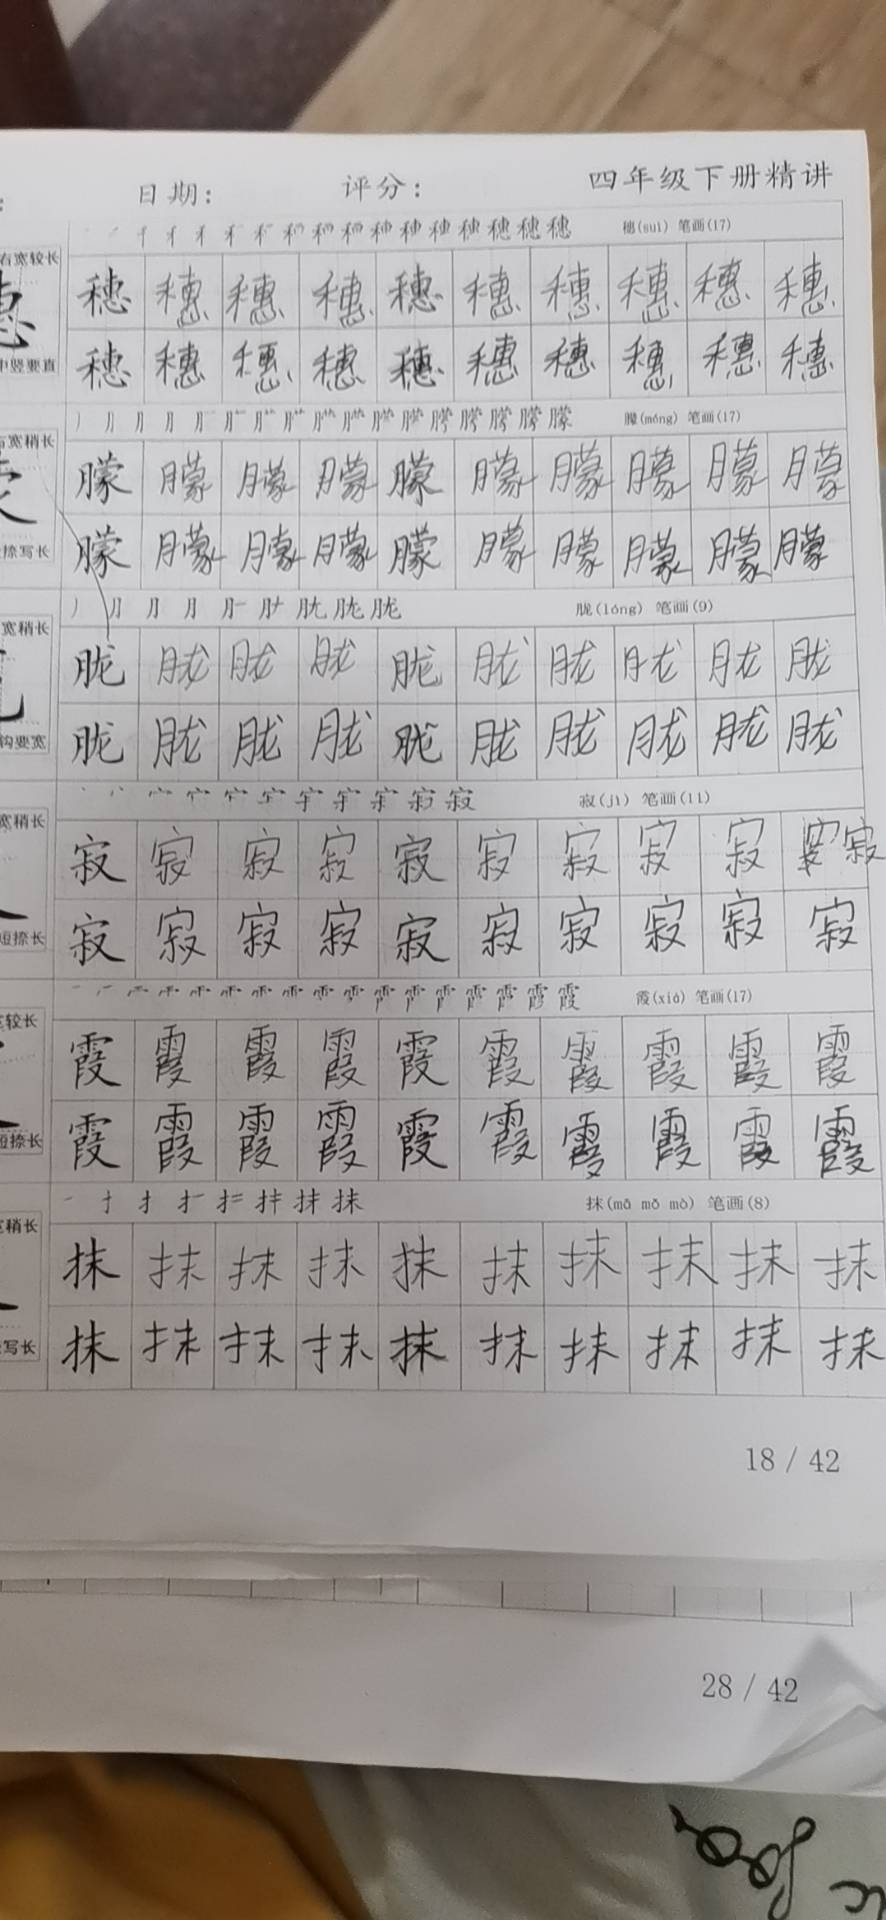 日期： 评分： 四年级下册精讲
穗(suì) 笔画(17)
右宽较长
穗 穗 穗 穗 穗 穗 穗 穗 穗 穗
中竖要直
穗 穗 穗 穗 穗 穗 穗 穗 穗 穗
朦(méng) 笔画(17)
右宽稍长
朦 朦 朦 朦 朦 朦 朦 朦 朦 朦
捺写长
朦 朦 朦 朦 朦 朦 朦 朦 朦 朦
丿 月 月 月 胧 胧 胧 胧(lóng) 笔画(9)
宽稍长
胧 胧 胧 胧 胧 胧 胧 胧 胧 胧
钩要宽
胧 胧 胧 胧 胧 胧 胧 胧 胧 胧
寂(jì) 笔画(11)
宽稍长
寂 寂 寂 寂 寂 寂 寂 寂 寂 寂
短捺长
寂 寂 寂 寂 寂 寂 寂 寂 寂 寂
霞(xiá) 笔画(17)
宽较长
霞 霞 霞 霞 霞 霞 霞 霞 霞 霞
短捺长
霞 霞 霞 霞 霞 霞 霞 霞 霞 霞
抹(mā mǒ mò) 笔画(8)
宽稍长
抹 抹 抹 抹 抹 抹 抹 抹 抹 抹
写长
抹 抹 抹 抹 抹 抹 抹 抹 抹 抹
18 / 42
28 / 42